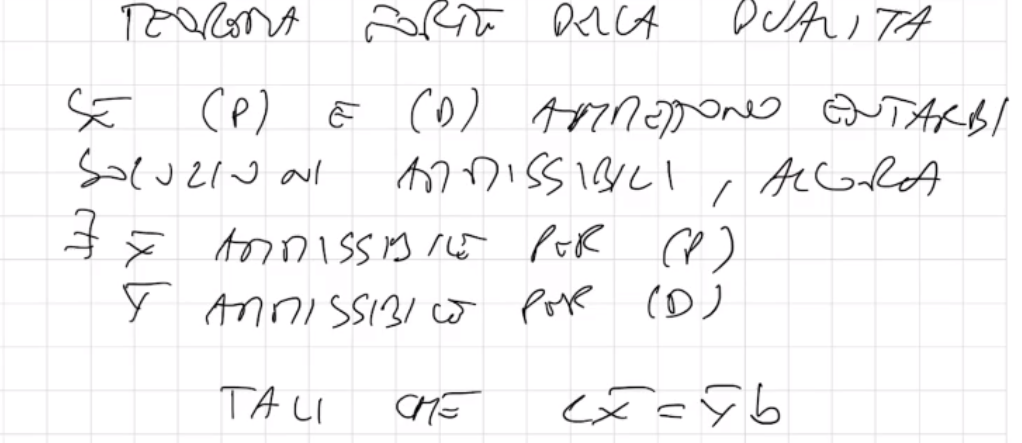 TEOREMA FORTE DELLA DUALITA
SE (P) E (D) AMMETTONO ENTRAMBI
SOLUZIONI AMMISSIBILI, ALLORA
∃ x̄ AMMISSIBILE PER (P)
ȳ AMMISSIBILE PER (D)
TALI CHE cx̄ = ȳb